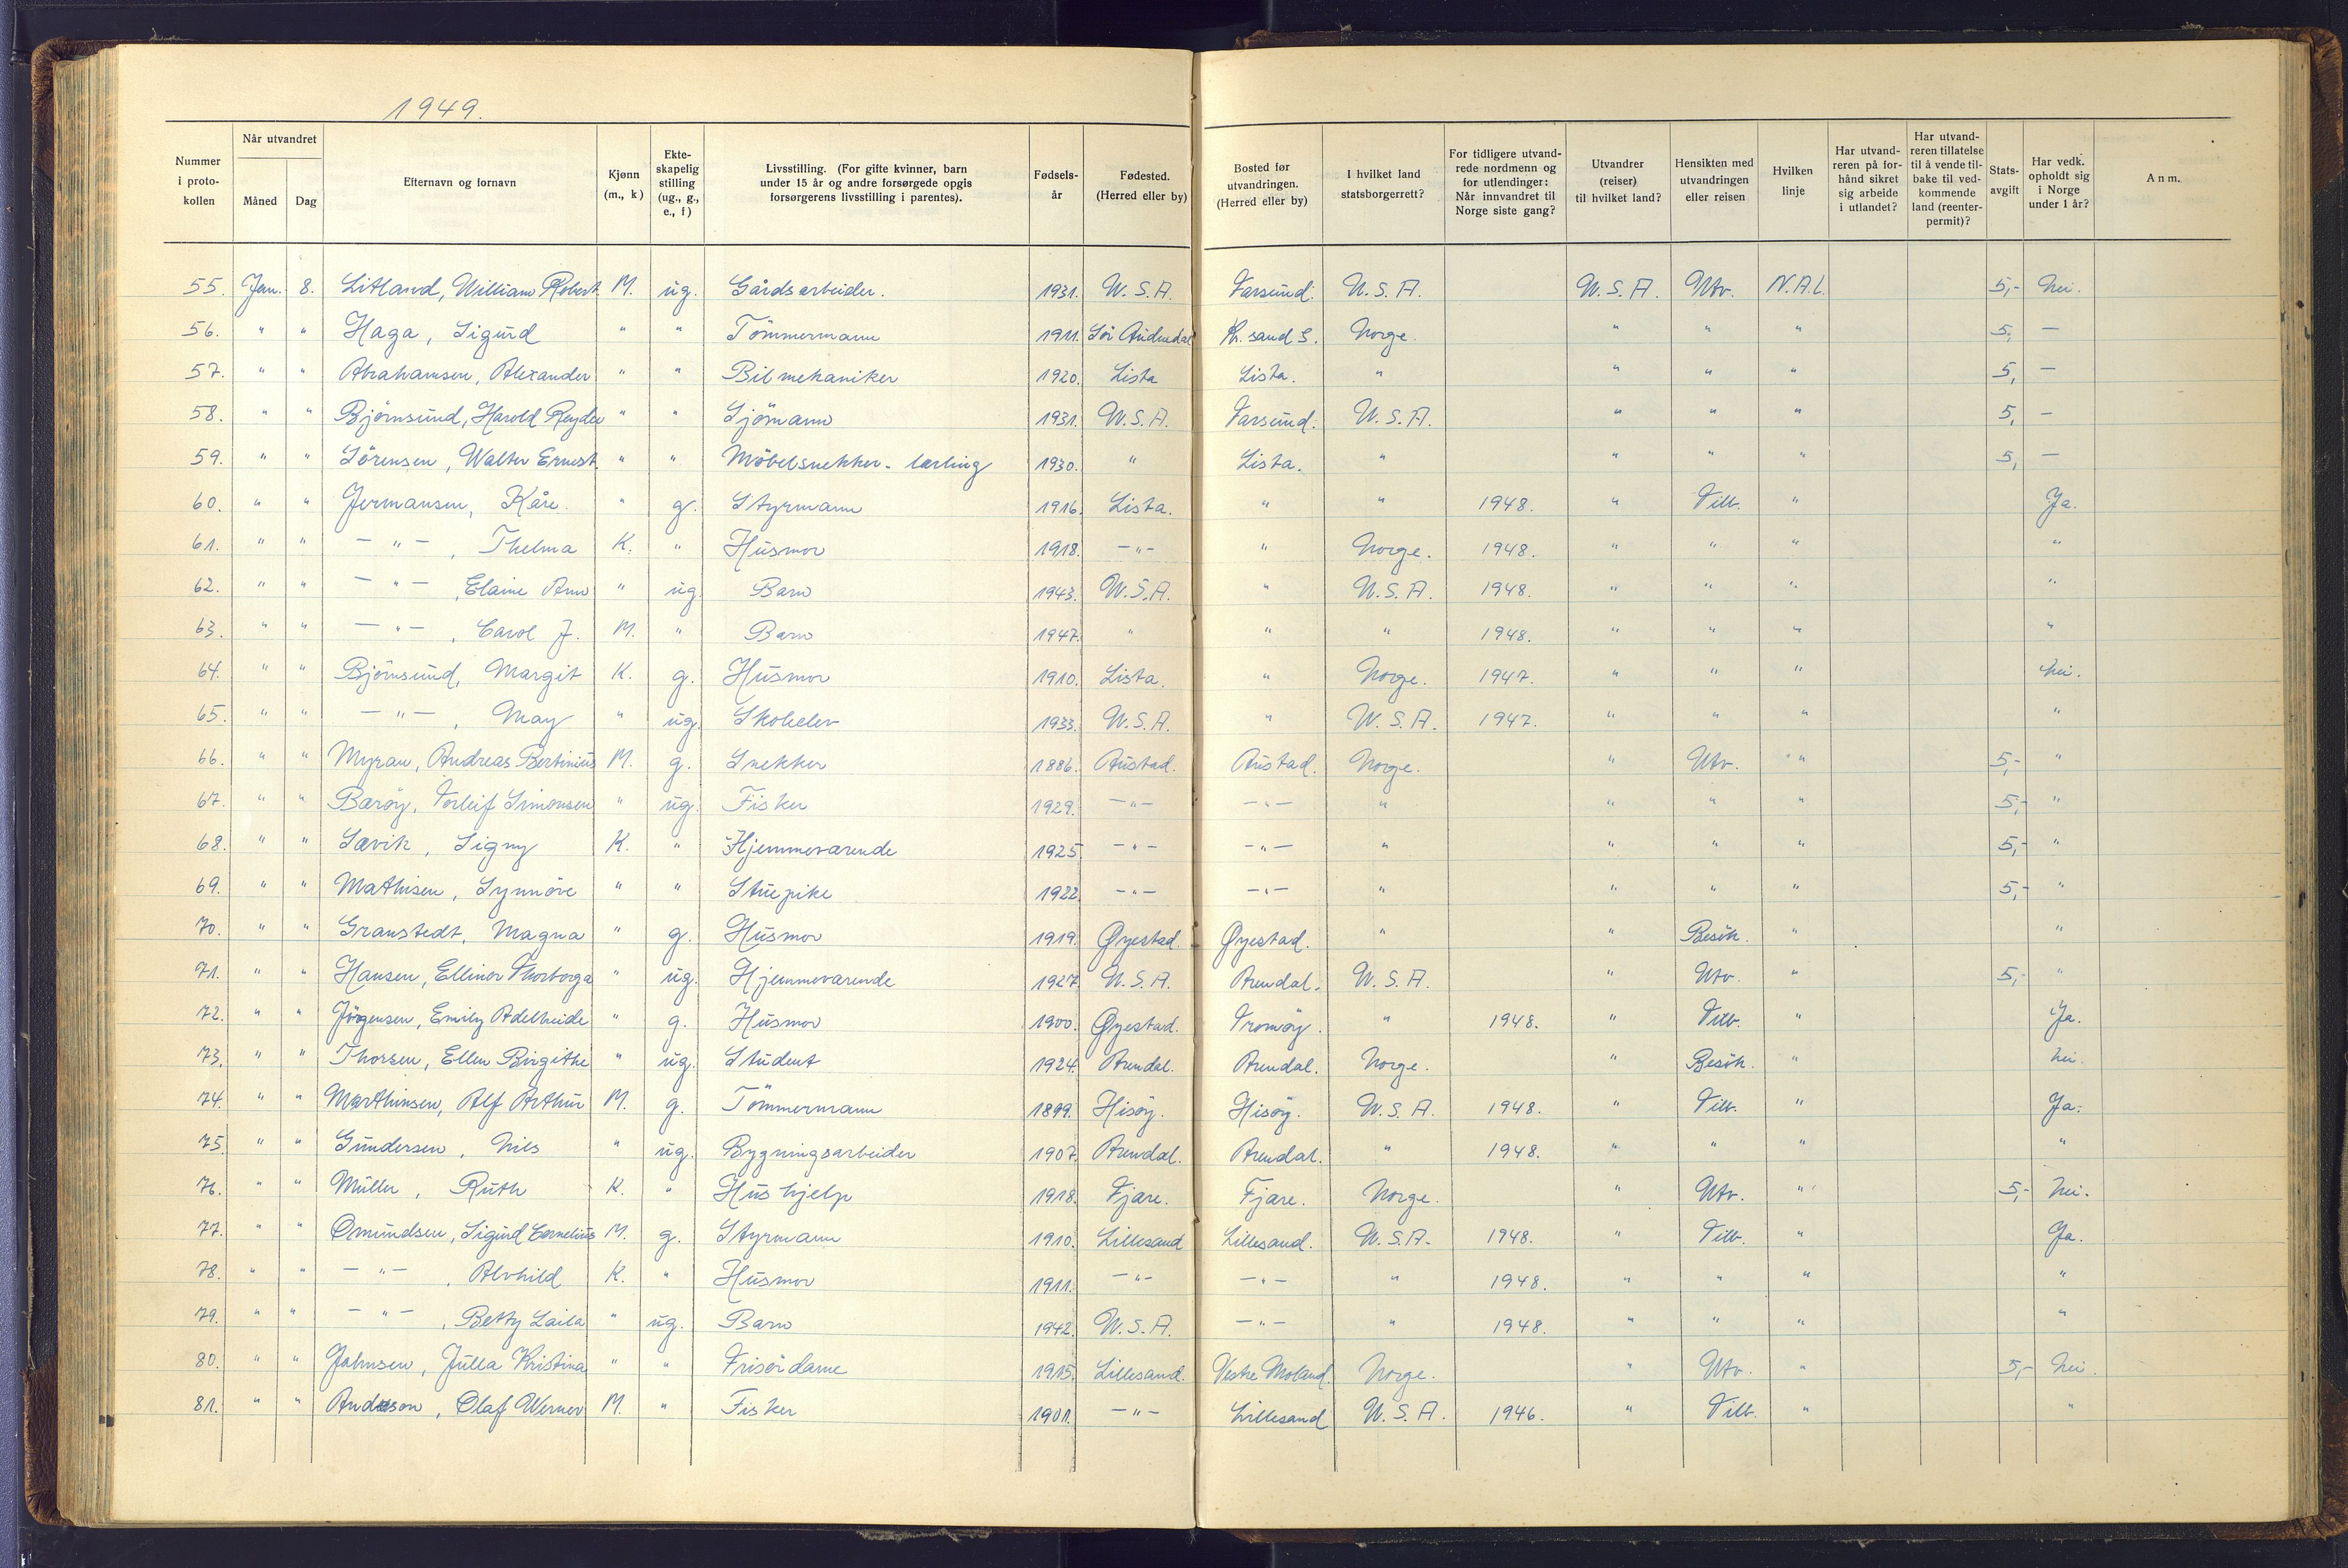 1949.
Nummer i proto-kollen | Når utvandret Måned | Dag | Efternavn og fornavn | Kjønn (m., k) | Ekte-skapelig stilling (ug., g., e., f) | Livsstilling. (For gifte kvinner, barn under 15 år og andre forsørgede opgis forsørgerens livsstilling i parentes). | Fødsels-år | Fødested. (Herred eller by) | Bosted før utvandringen. (Herred eller by) | I hvilket land statsborgerrett? | For tidligere utvand-rede nordmenn og for utlendinger: Når innvandret til Norge siste gang? | Utvandrer (reiser) til hvilket land? | Hensikten med utvandringen eller reisen | Hvilken linje | Har utvand-reren på for-hånd sikret sig arbeide i utlandet? | Har utvand-reren tillatelse til å vende til-bake til ved-kommende land (reenter-permit)? | Stats-avgift | Har vedk. opholdt sig i Norge under 1 år? | Anm.
55. Jan. 8. Litland, William Robert M. ug. Gårdsarbeider. 1931. U.S.A. Farsund. U.S.A. U.S.A. Utv. N.A.L. 5,- Nei.
56. " " Haga, Sigurd " " Tömmermann 1911. Sör Audnedal Kr. sand S. Norge. " " " 5, —
57. " " Abrahamsen, Alexander " " Bilmekaniker 1920. Lista Lista. " " " " 5, —
58. " " Björnsund, Harold Reyder " " Sjömann 1931. U.S.A. Farsund. U.S.A. " " " 5, —
59. " " Sörensen, Walter Ernest " " Möbelsnekker-lærling 1930. " Lista. " " " " 5, —
60. " " Jermansen, Kåre. " g. Styrmann 1916. Lista. " " 1948. " Tilb. " Ja.
61. " " — " — , Thelma K. " Husmor 1918. — " — " Norge. 1948. " " " "
62. " " — " — , Elaine Ann " ug. Barn 1943. U.S.A. " U.S.A. 1948. " " " "
63. " " — " — , Carol J. M. " Barn 1947. " " " 1948. " " " "
64. " " Björnsund, Margit K. g. Husmor 1910. Lista. " Norge. 1947. " " " Nei.
65. " " — " — , May " ug. Skoleelev 1933. U.S.A. " U.S.A. 1947. " " " "
66. " " Myran, Andreas Bertinius M. g. Snekker 1886. Austad. Austad. Norge. " Utv. " 5,- "
67. " " Barøy, Torleif Simonsen " ug. Fisker 1929. — " — — " — " " " " 5,- "
68. " " Sævik, Signy K. " Hjemmeværende 1925 — " — — " — " " " " 5,- "
69. " " Mathisen, Synnöve " " Stuepike 1922 — " — — " — " " " " 5,- "
70. " " Granstedt, Magna " g. Husmor 1919. Øyestad. Øyestad. " " Besök. " "
71. " " Hansen, Ellinor Thorborga " ug. Hjemmeværende 1927 U.S.A. Arendal. U.S.A. " Utv. " 5,- "
72. " " Jörgensen, Emily Adelheide " g. Husmor 1900. Øyestad. Tromöy. " 1948. " Tilb. " Ja.
73. " " Thorsen, Ellen Birgithe " ug. Student 1924. Arendal. Arendal. Norge. " Besök. " Nei.
74. " " Marthinsen, Alf Arthur M. g. Tömmermann 1899. Hisöy. Hisöy. U.S.A. 1948. " Tilb. " Ja.
75. " " Gundersen, Nils " ug. Bygningsarbeider 1907. Arendal. Arendal. " 1948. " " " "
76. " " Müller, Ruth K. " Hushjelp 1918. Fjære. Fjære. Norge. " Utv. " 5,- Nei.
77. " " Omundsen, Sigurd Cornelius M. g. Styrmann 1910. Lillesand Lillesand. U.S.A. 1948. " Tilb. " Ja.
78. " " — " — , Alvhild K. " Husmor 1911. — " — — " — " 1948. " " " "
79. " " — " — , Betty Laila " ug. Barn 1942. U.S.A. — " — " 1948. " " " "
80. " " Johnsen, Julla Kristina " " Frisördame 1915. Lillesand. Vestre Moland. Norge. " Utv. " 5,- Nei.
81. " " Anderson, Olaf Werner M. " Fisker 1901. — " — Lillesand U.S.A. 1946. " Tilb. " "